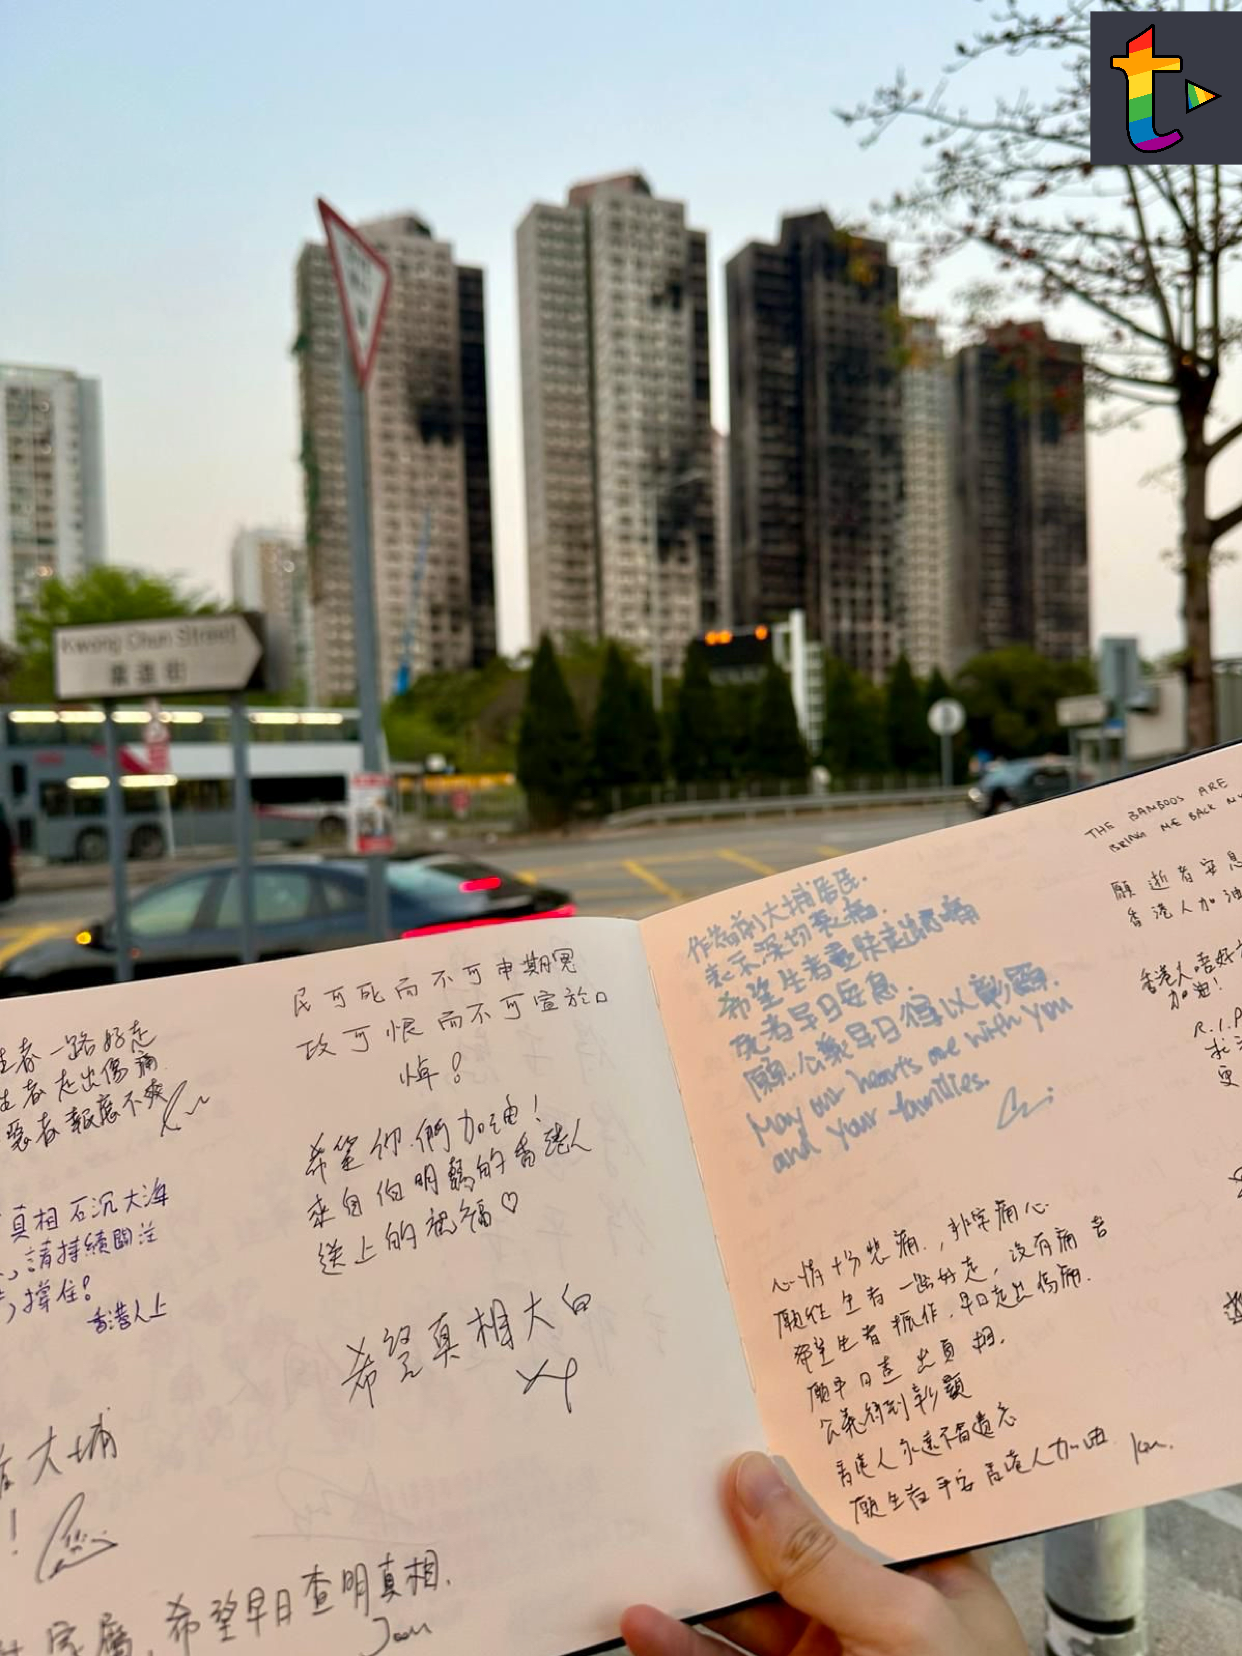 Kwong Chun Street
民可死而不可申期冤
政可恨而不可宣於口
悼！
希望你們加油！
來自伯明翰的香港人
送上的祝福♡
希望真相大白
一路好走
生者走出傷痛
惡者報應不爽
真相石沉大海
請持續關注
撐住！
香港人上
大埔
！
家屬，希望早日查明真相.
作為前大埔居民.
表示深切哀痛.
希望生者盡快走出傷痛
死者早日安息.
願公義早日得以彰顯.
May our hearts are with you
and your families.
心情十分悲痛.，非常痛心
願往生者一路好走，沒有痛苦
希望生者振作，早日走出傷痛.
願早日查出真相.
公義得到彰顯
香港人永遠不會遺忘
願生者平安香港人加油
THE BAMBOOS ARE
BRING ME BACK
願逝者安息
香港人加油
香港人唔好
加油！
R.I.P
求
更